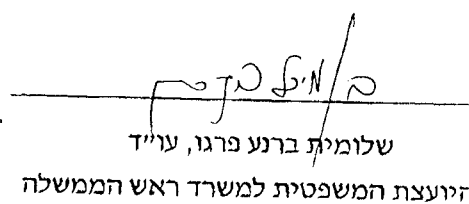 שלומית ברנע פרגו, עו"ד
היועצת המשפטית למשרד ראש הממשלה